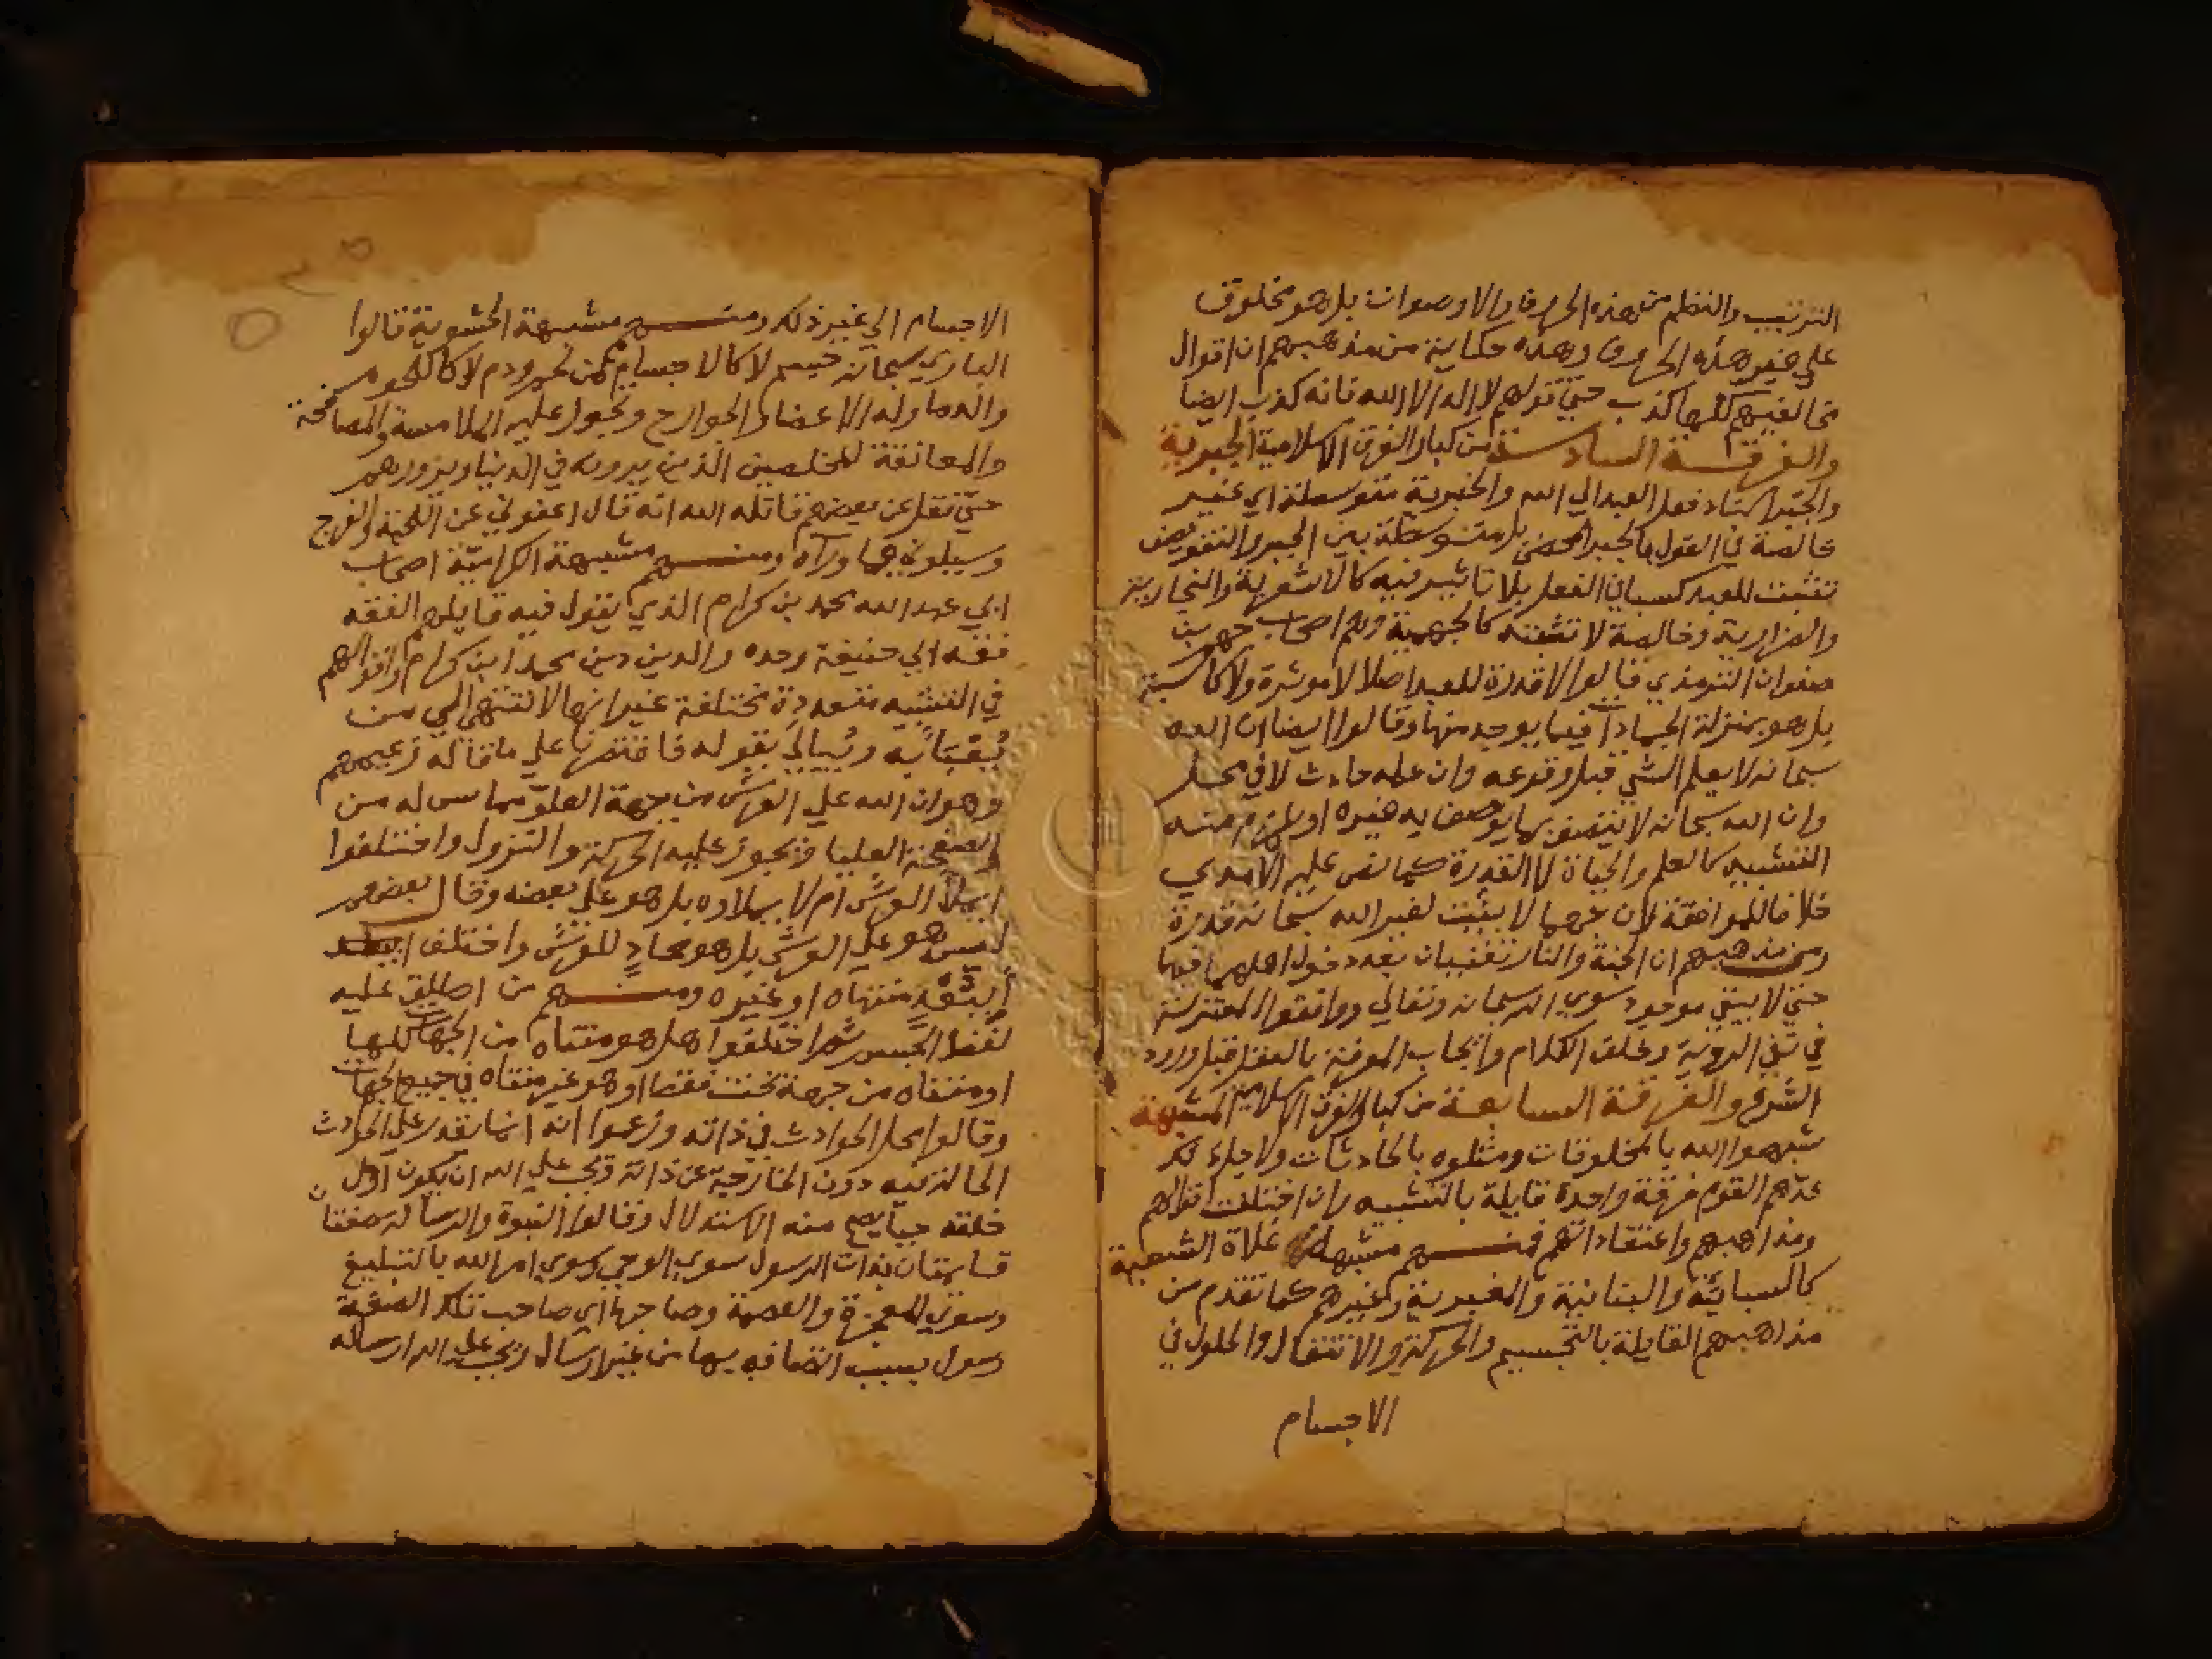 الترتيب والنظم من هذه الحروف والاصوات بل هو مخلوق
على غير هذه الحروف وهذه حكاية من مذهبهم ان اقوال
مخالفيهم كلها كذب حتى قولهم لا اله الا الله فانه كذب ايضا
والفرقة السادسة من كبار الفرق الاسلامية الجبرية
والجبر اسناد فعل العبد الي الله والجبرية متوسطة اي غير
خالصة في القول بالجبر المحض بل متوسطة بين الجبر والتفويض
تثبت للعبد كسبا في الفعل بلا تاثير فيه كالاشعرية والنجارية
والضرارية وخالصة لا تثبته كالجهمية وهم اصحاب جهم بن
صفوان الترمذي قالوا لا قدرة للعبد اصلا لا موثرة ولا كاسبة
بل هو بمنزلة الجمادات فيما يوجد منها وقالوا ايضا ان الله
سبحانه لا يعلم الشي قبل وقوعه وان علمه حادث لا في محل
وان الله سبحانه لا يتصف بما يوصف به غيره او يلزم منه
التشبيه كالعلم والحياة لا القدرة كما نص عليه الامدي
خلافا للموافقة لان جهما لا يثبت لغير الله سبحانه قدرة
ومن مذهبهم ان الجنة والنار تفنيان بعد دخول اهلهما فيها
حتي لا يبقي موجود سوي الله سبحانه وتعالي ووافقوا المعتزلة
في نفي الروية وخلق الكلام وايجاب المعرفة بالعقل قبل ورود
الشرع والفرقة السابعة من كبار الفرق الاسلامية المشبهة
شبهوا الله بالمخلوقات ومثلوه بالحادثات ولاجل ذلك
عدهم القوم فرقة واحدة قايلة بالتشبيه وان اختلفت اقوالهم
ومذاهبهم واعتقاداتهم فمنهم مشبهة غلاة الشيعة
كالسبائية والبنانية والمغيرية وغيرهم كما تقدم من
مذاهبهم القايلة بالتجسيم والحركة والانتقال والحلول في
الاجسام
الاجسام الي غير ذلك ومنهم مشبهة الحشوية قالوا
الباري سبحانه جسم لا كالاجسام من لحم ودم لا كاللحوم
والدما وله الاعضا والجوارح ويجوز عليه الملامسة والمصافحة
والمعانقة للمخلصين الذين يرونه في الدنيا ويزورهم
حتي نقل عن بعضهم قاتله الله انه قال اعفوني عن اللحية والفرج
وسلوني عما وراه ومنهم مشبهة الكرامية اصحاب
ابي عبد الله محمد بن كرام الذي يقول فيه قايلهم الفقه
فقه ابي حنيفة وحده والدين دين محمد ابن كرام واقوالهم
في التشبيه متعددة مختلفة غير انها لا تنتهي الي من
يعبا به ويبالي بقوله فاقتصرنا علي ما قاله زعيمهم
وهو ان الله علي العرش من جهة العلو مماس له من
الصفحة العليا ويجوز عليه الحركة والنزول واختلفوا
ايملا العرش ام لا يملاوه بل هو علي بعضه وقال بعضهم
ليس هو علي العرش بل هو محاد للعرش واختلف
أببعد متناه او غيره ومنهم من اطلق عليه
لفظ الجسم ثم اختلفوا هل هو متناه من الجهات كلها
او متناه من جهة تحت فقط او هو غير متناه في جميع الجهات
وقالوا يحل الحوادث في ذاته وزعموا انه انما يقدر علي الحوادث
الحالة فيه دون الخارجة عن ذاته ويجب علي الله ان يكون اول
خلقه حيا يصح منه الاستدلال وقالوا النبوة والرسالة صفتان
قايمتان بذات الرسول سوي الوحي وسوي امر الله بالتبليغ
وسوي المعجزة والعصمة وصاحبها اي صاحب تلك الصفة
رسول بسبب اتصافه بها من غير ارسال ويجب علي الله ارساله